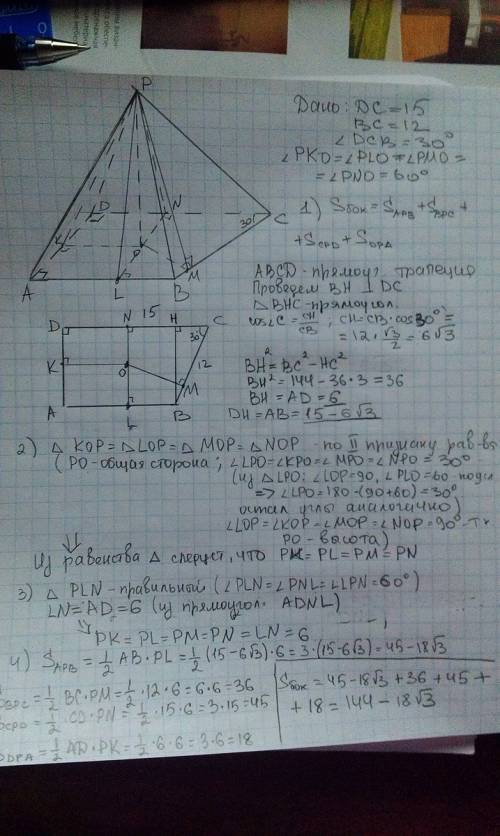 P
Дано: DC = 15
BC = 12
∠DCB = 30°
∠PKO = ∠PLO = ∠PMO =
= ∠PNO = 60°
D N C 30° K O M A L B
1) Sбок = SAPB + SBPC +
+ SCPD + SDPA
ABCD - прямоуг. трапеция
Проведем BH ⊥ DC
△BHC - прямоугол.
cos∠C = CH/CB ; CH = CB · cos30° =
= 12 · √3/2 = 6√3
BH² = BC² - HC²
BH² = 144 - 36·3 = 36
BH = AD = 6
DH = AB = 15-6√3
D N 15 H C
30°
K O 12 M
A L B
2) △KOP = △LOP = △MOP = △NOP - по II признаку рав-ва
(PO - общая сторона; ∠LPO = ∠KPO = ∠MPO = ∠NPO = 30°
(из △LPO: ∠LOP = 90, ∠PLO = 60
=> ∠LPO = 180-(90+60) = 30°
остал углы аналогично)
∠LOP = ∠KOP = ∠MOP = ∠NOP = 90° - т.к
PO - высота)
Из равенства △ следует, что PK = PL = PM = PN
3) △PLN - правильный (∠PLN = ∠PNL = ∠LPN = 60°)
LN = AD = 6 (из прямоугол. ADNL)
PK = PL = PM = PN = LN = 6
4) SAPB = 1/2 AB · PL = 1/2 (15-6√3)·6 = 3·(15-6√3) = 45-18√3
BPC = 1/2 BC · PM = 1/2 · 12 · 6 = 6·6 = 36
CPD = 1/2 · CD · PN = 1/2 · 15 · 6 = 3·15 = 45
DPA = 1/2 AD · PK = 1/2 · 6 · 6 = 3·6 = 18
Sбок = 45-18√3 + 36 + 45 +
+ 18 = 144 - 18√3